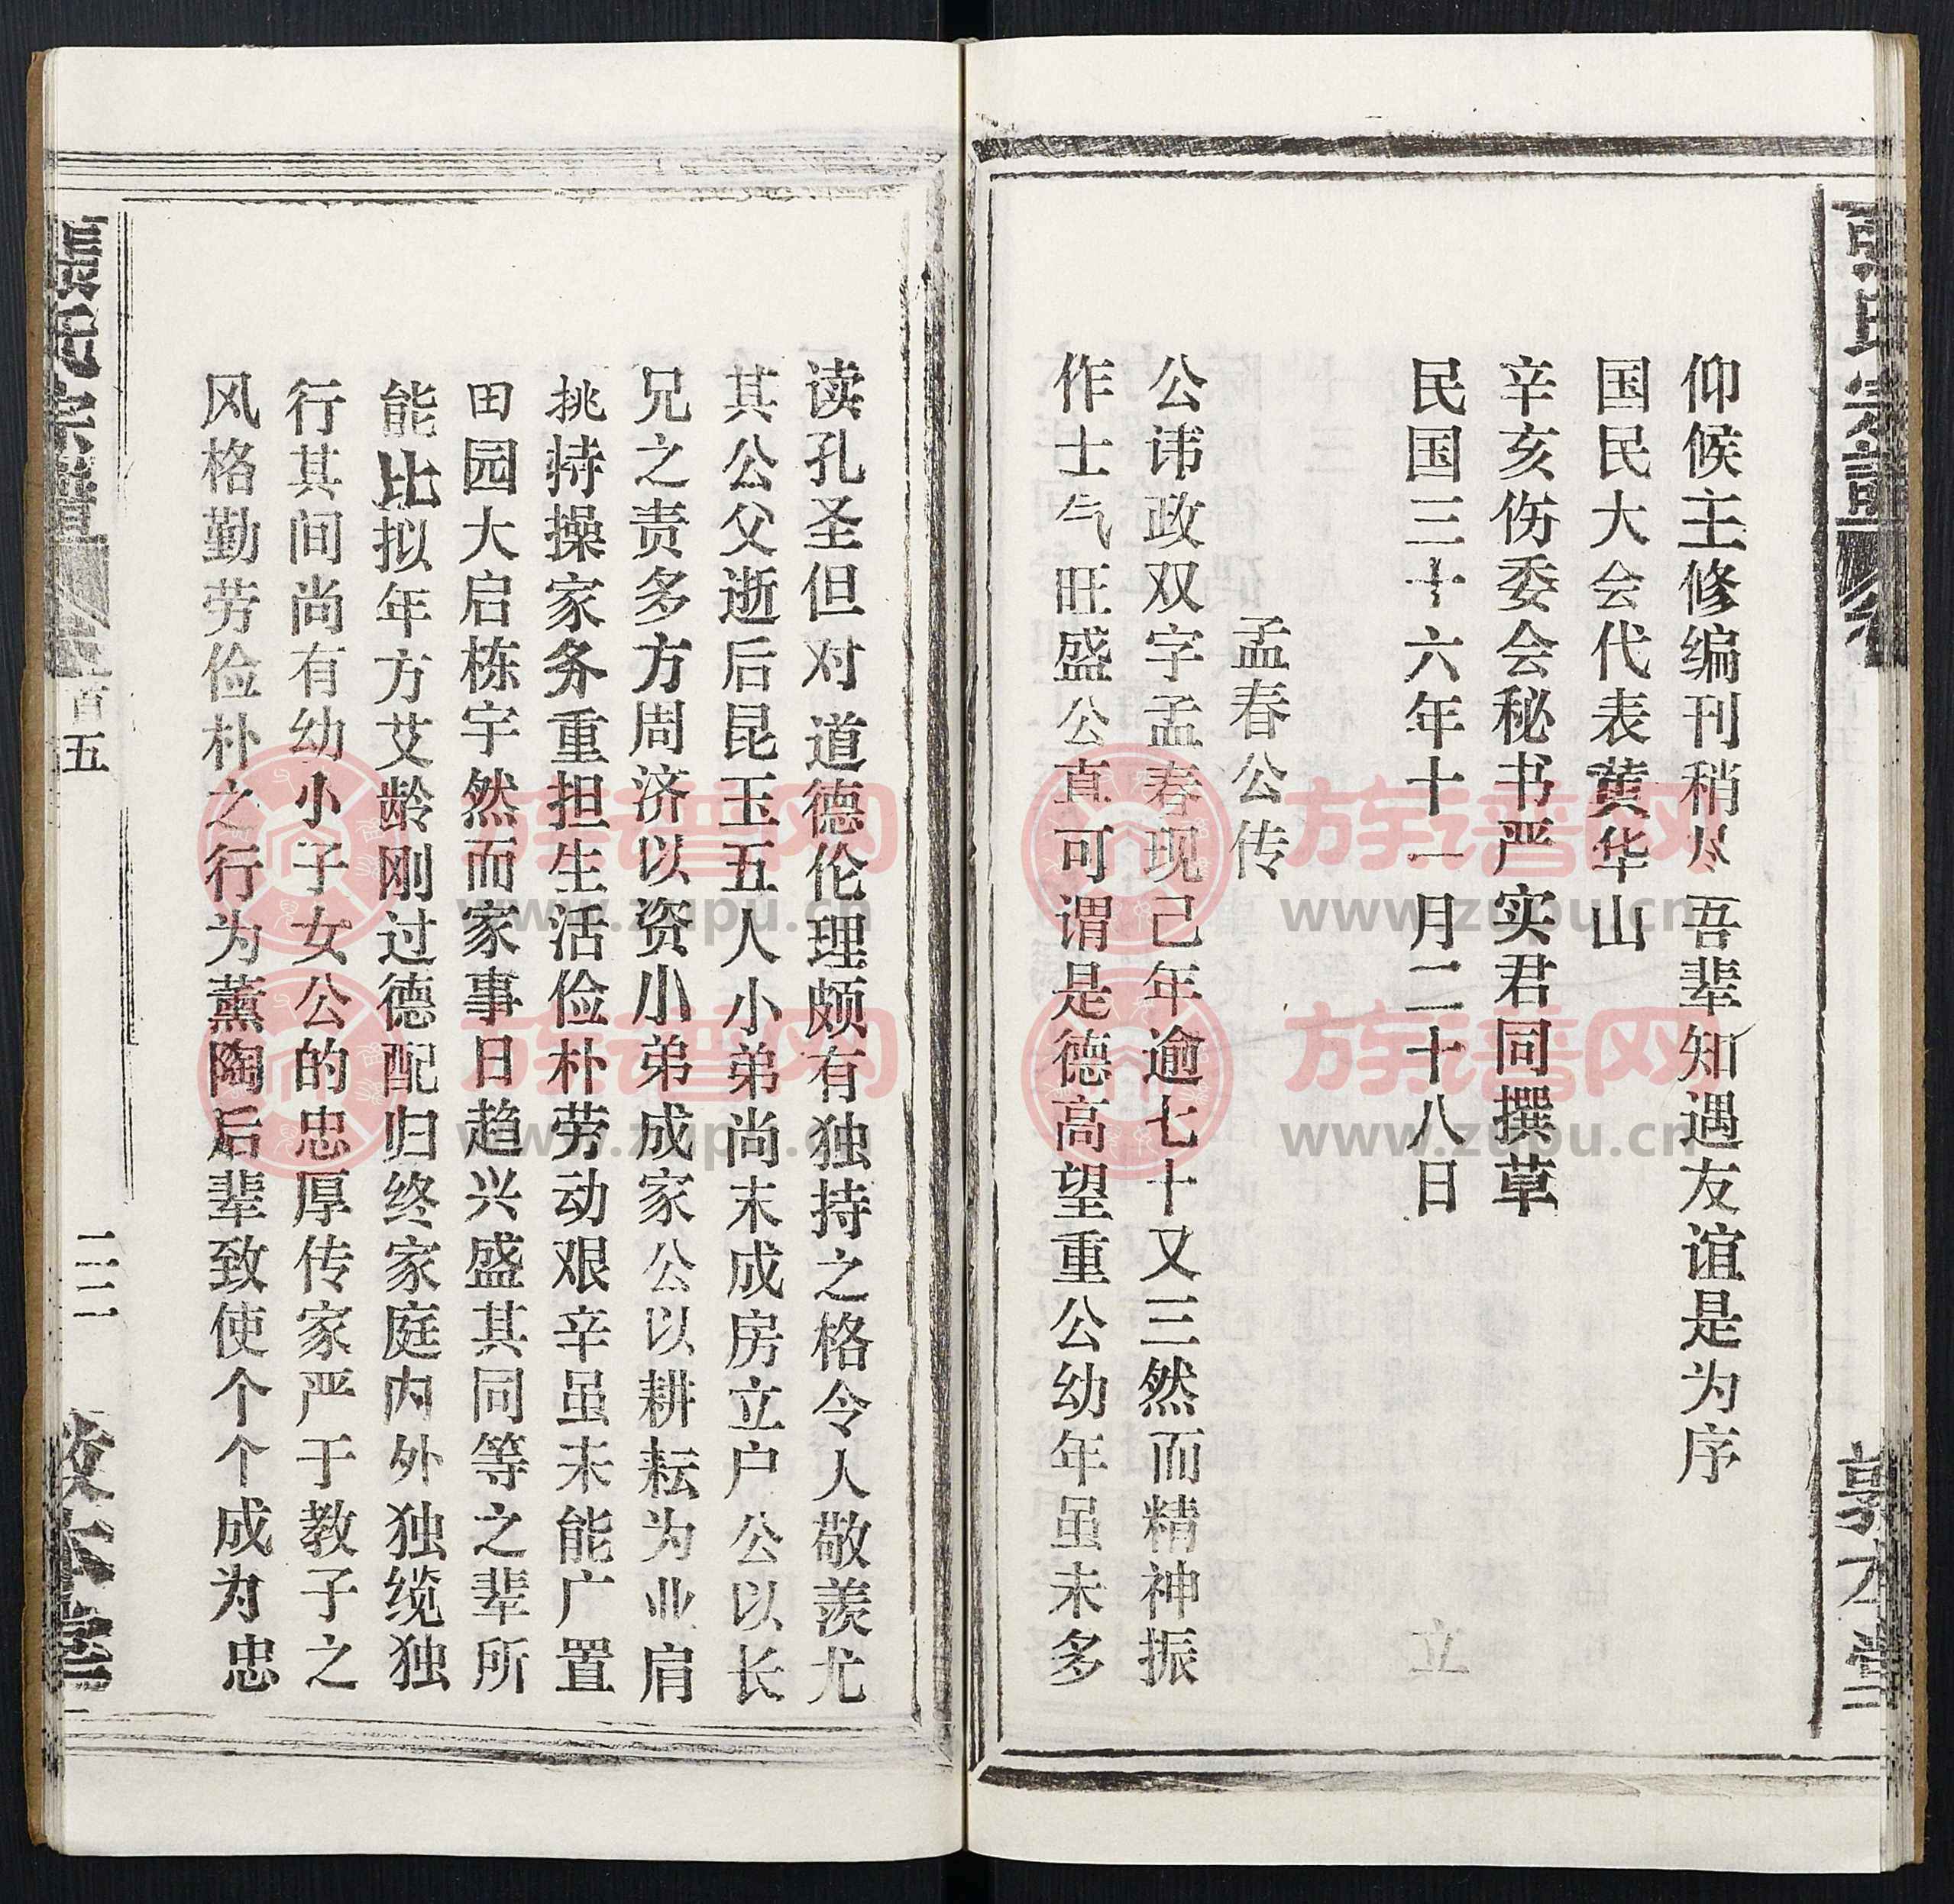 仰候主修编刊稍尽吾辈知遇友谊是为序
国民大会代表黄华山
辛亥伤委会秘书严实君同撰草
民国三十六年十一月二十八日
立
孟春公传
公讳政双字孟春现己年逾七十又三然而精神振
作士气旺盛公直可谓是德高望重公幼年虽未多
敦本堂
读孔圣但对道德伦理颇有独持之格令人敬羡尤
其公父逝后昆玉五人小弟尚末成房立户公以长
兄之责多方周济以资小弟成家公以耕耘为业肩
挑持操家务重担生活俭朴劳动艰辛虽未能广置
田园大启栋宇然而家事日趋兴盛其同等之辈所
能比拟年方艾龄刚过德配归终家庭内外独缆独
行其间尚有幼小子女公的忠厚传家严于教子之
风格勤劳俭朴之行为薰陶后辈致使个个成为忠
张氏宗谱 卷首五
敦本堂
族谱网
www.zupu.cn
族谱网
www.zupu.cn
族谱网
www.zupu.cn
族谱网
www.zupu.cn